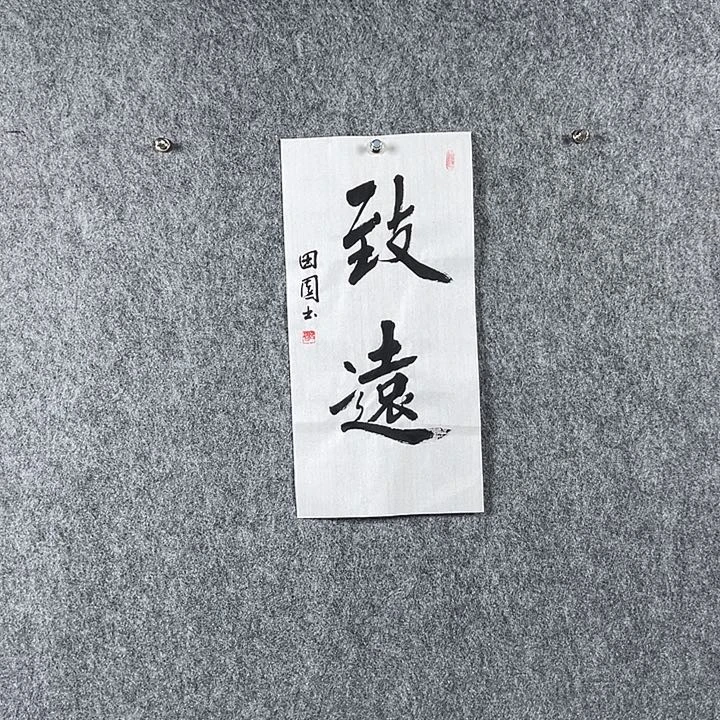 致遠
田園士